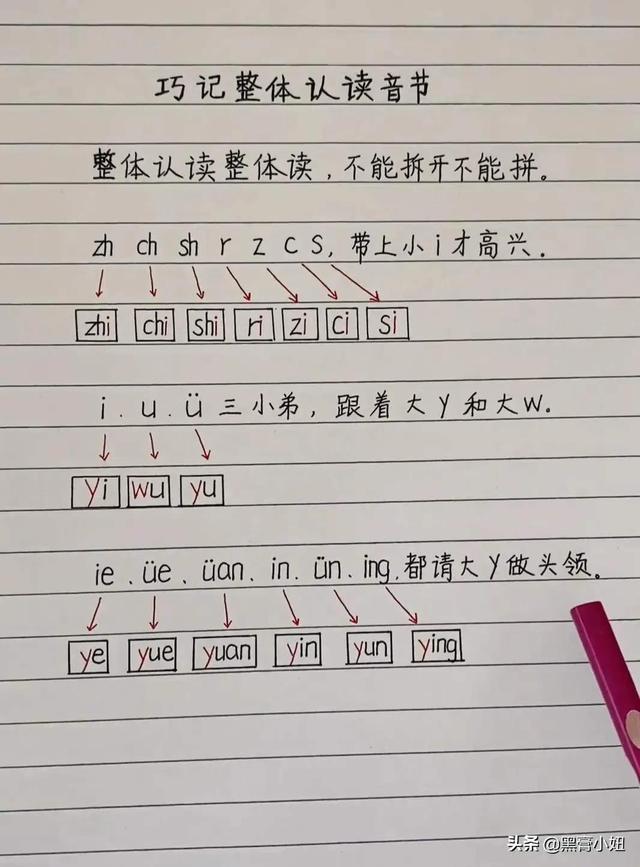 巧记整体认读音节
整体认读整体读,不能拆开不能拼。
zh ch sh r z c s,带上小i才高兴.
zhi chi shi ri zi ci si
i.u.ü三小弟,跟着大y和大w.
yi wu yu
ie、üe、üan、in、ün、ing,都请大y做头领。
ye yue yuan yin yun ying
头条 @黑膏小妞